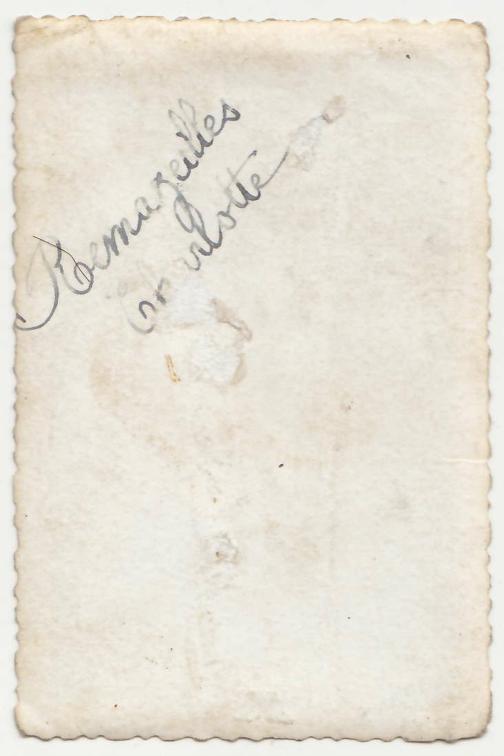 Remazeilles
Charlotte